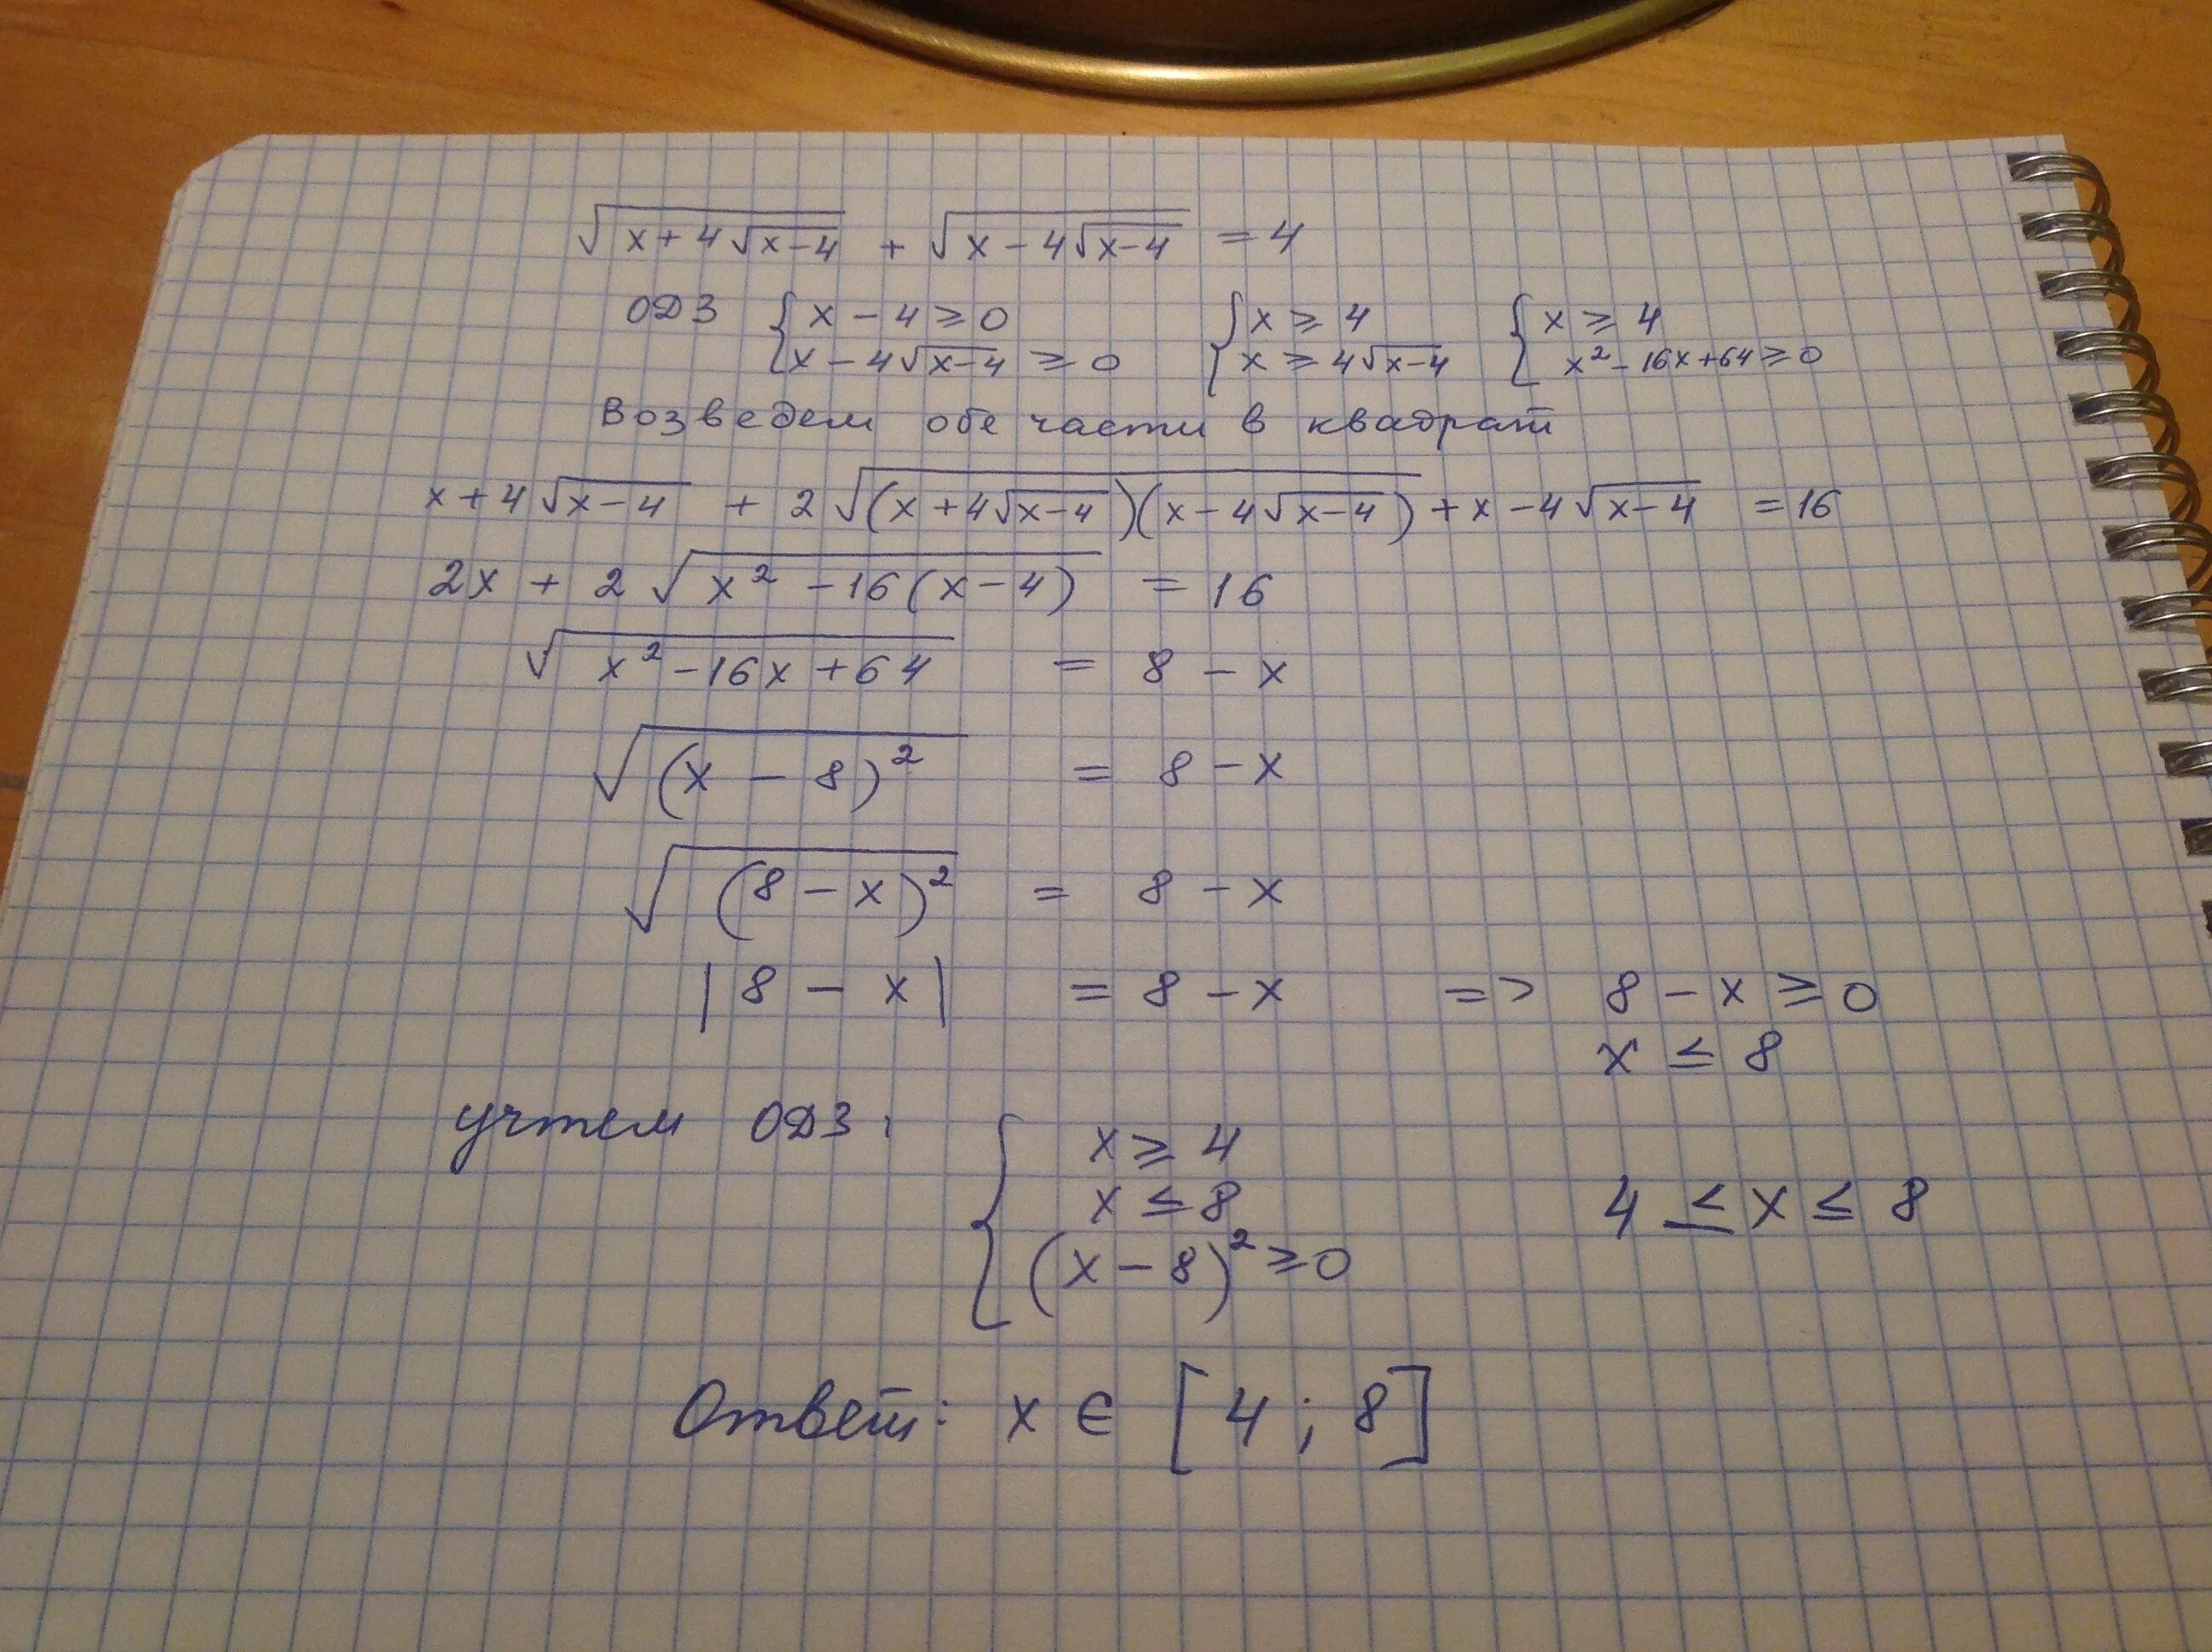 √(x+4√(x-4)) + √(x-4√(x-4)) = 4
ОДЗ { x-4≥0 { x≥4 { x≥4
x-4√(x-4) ≥0 x≥4√(x-4) x²-16x+64≥0
Возведем обе части в квадрат
x+4√(x-4) + 2√((x+4√(x-4))(x-4√(x-4))) + x-4√(x-4) =16
2x + 2√(x²-16(x-4)) = 16
√(x²-16x+64) = 8-x
√((x-8)²) = 8-x
√((8-x)²) = 8-x
|8-x| = 8-x => 8-x≥0
x≤8
учтем ОДЗ: { x≥4
x≤8 4≤x≤8
(x-8)²≥0
Ответ: x∈[4;8]